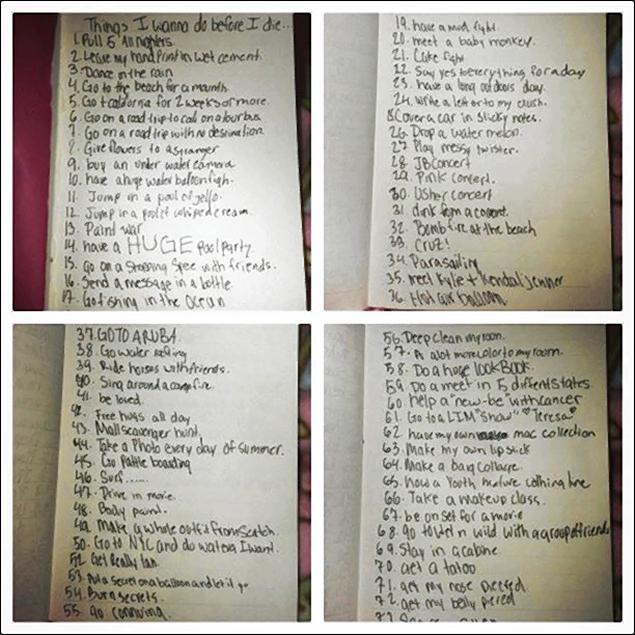 Things I wanna do before I die...
1. Pull 5 Allnighters.
2. Leave my hand Print in wet cement.
3. Dance in the rain
4. Go to the beach for a mounth.
5. Go t california for 2 weeks or more.
6. Go on a road trip to cali on a tour bus
7. Go on a road trip with no destination.
8. Give flowers to a stranger
9. buy an under water camera
10. have a huge water balloon figh.
11. Jump in a pool of jello.
12. Jump in a pool of whiped cream.
13. Paind war
14. have a HUGE Pool party.
15. Go on a Shopping Spee with friends.
16. Send a message in a bottle.
17. Go fishing in the Ocean
19. have a mud fight.
20. meet a baby monkey.
21. Cake fight
22. Say yes to everything for a day
23. have a long outdoors day.
24. Write a letter to my crush.
Cover a car in sticky notes.
26. Drop a water melon.
27. Play messy twister.
28. JB Concert
29. Pink concert.
30. Usher concert
31. dink from a
32. Bomb fire at the beach
33. Cruz!
34. Parasailing
35. meet Kylie + Kendal jenner
36. Hot air balloon
37. GO TO ARUBA.
38. Go water
39. Ride horses with friends.
40. Sing around a camp fire.
41. be loved.
42. Free hugs all day
43. Mall scavenger hunt.
44. Take a Photo every day of summer.
45. Go Pattle boarding
46. Surf......
47. Drive in movie.
48. Body paint.
49. Make a whole outfit from scatch.
50. Go to NYC and do watever I want.
52. Get Really tan
53. Put a secret on a balloon and let it go
54. Burn secrets.
55. go
56. Deep clean my room.
57. A alot more color to my room.
58. Do a huge look Book.
59. Do a meet in 5 diffent states.
60. help a "new-be" with cancer
61. Go to a LTM "show" "Teresa"
62. have my own mac collection
63. Make my own lip stick
64. Make a bag collage.
65. how a Youth mature cothing line
66. Take a makeup class.
67. be on set for a movie
68. go to wet n wild with a group of friends
69. Stay in a cabine.
70. get a tatoo
71. get my nose pierced
72. get my belly piered